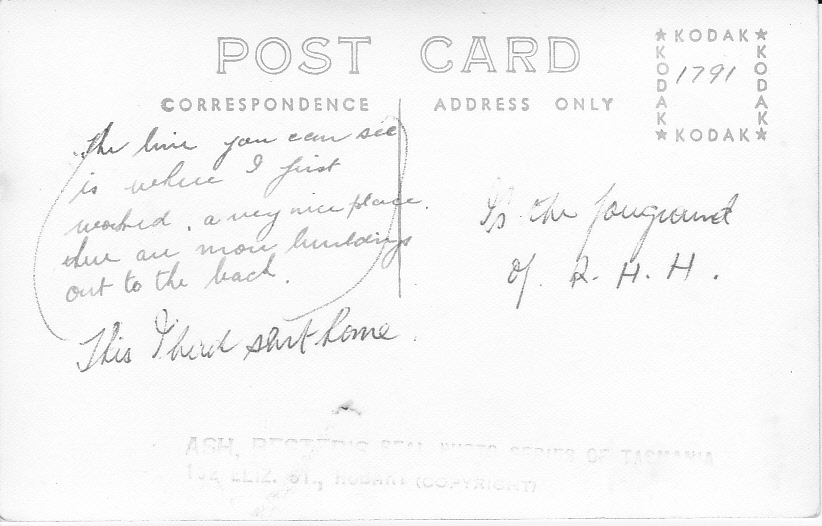 POST CARD
CORRESPONDENCE
ADDRESS ONLY
★ KODAK ★
KODAK
KODAK
★ KODAK ★
1791
The line you can see
is where I first
worked. a very nice place.
there are more buildings
out to the back.
This I had sent home.
Is the fourgrund
of. R. H. H.
ASH, BESTER'S REAL PHOTO SERIES OF TASMANIA
ELIZ. ST., HOBART (COPYRIGHT)